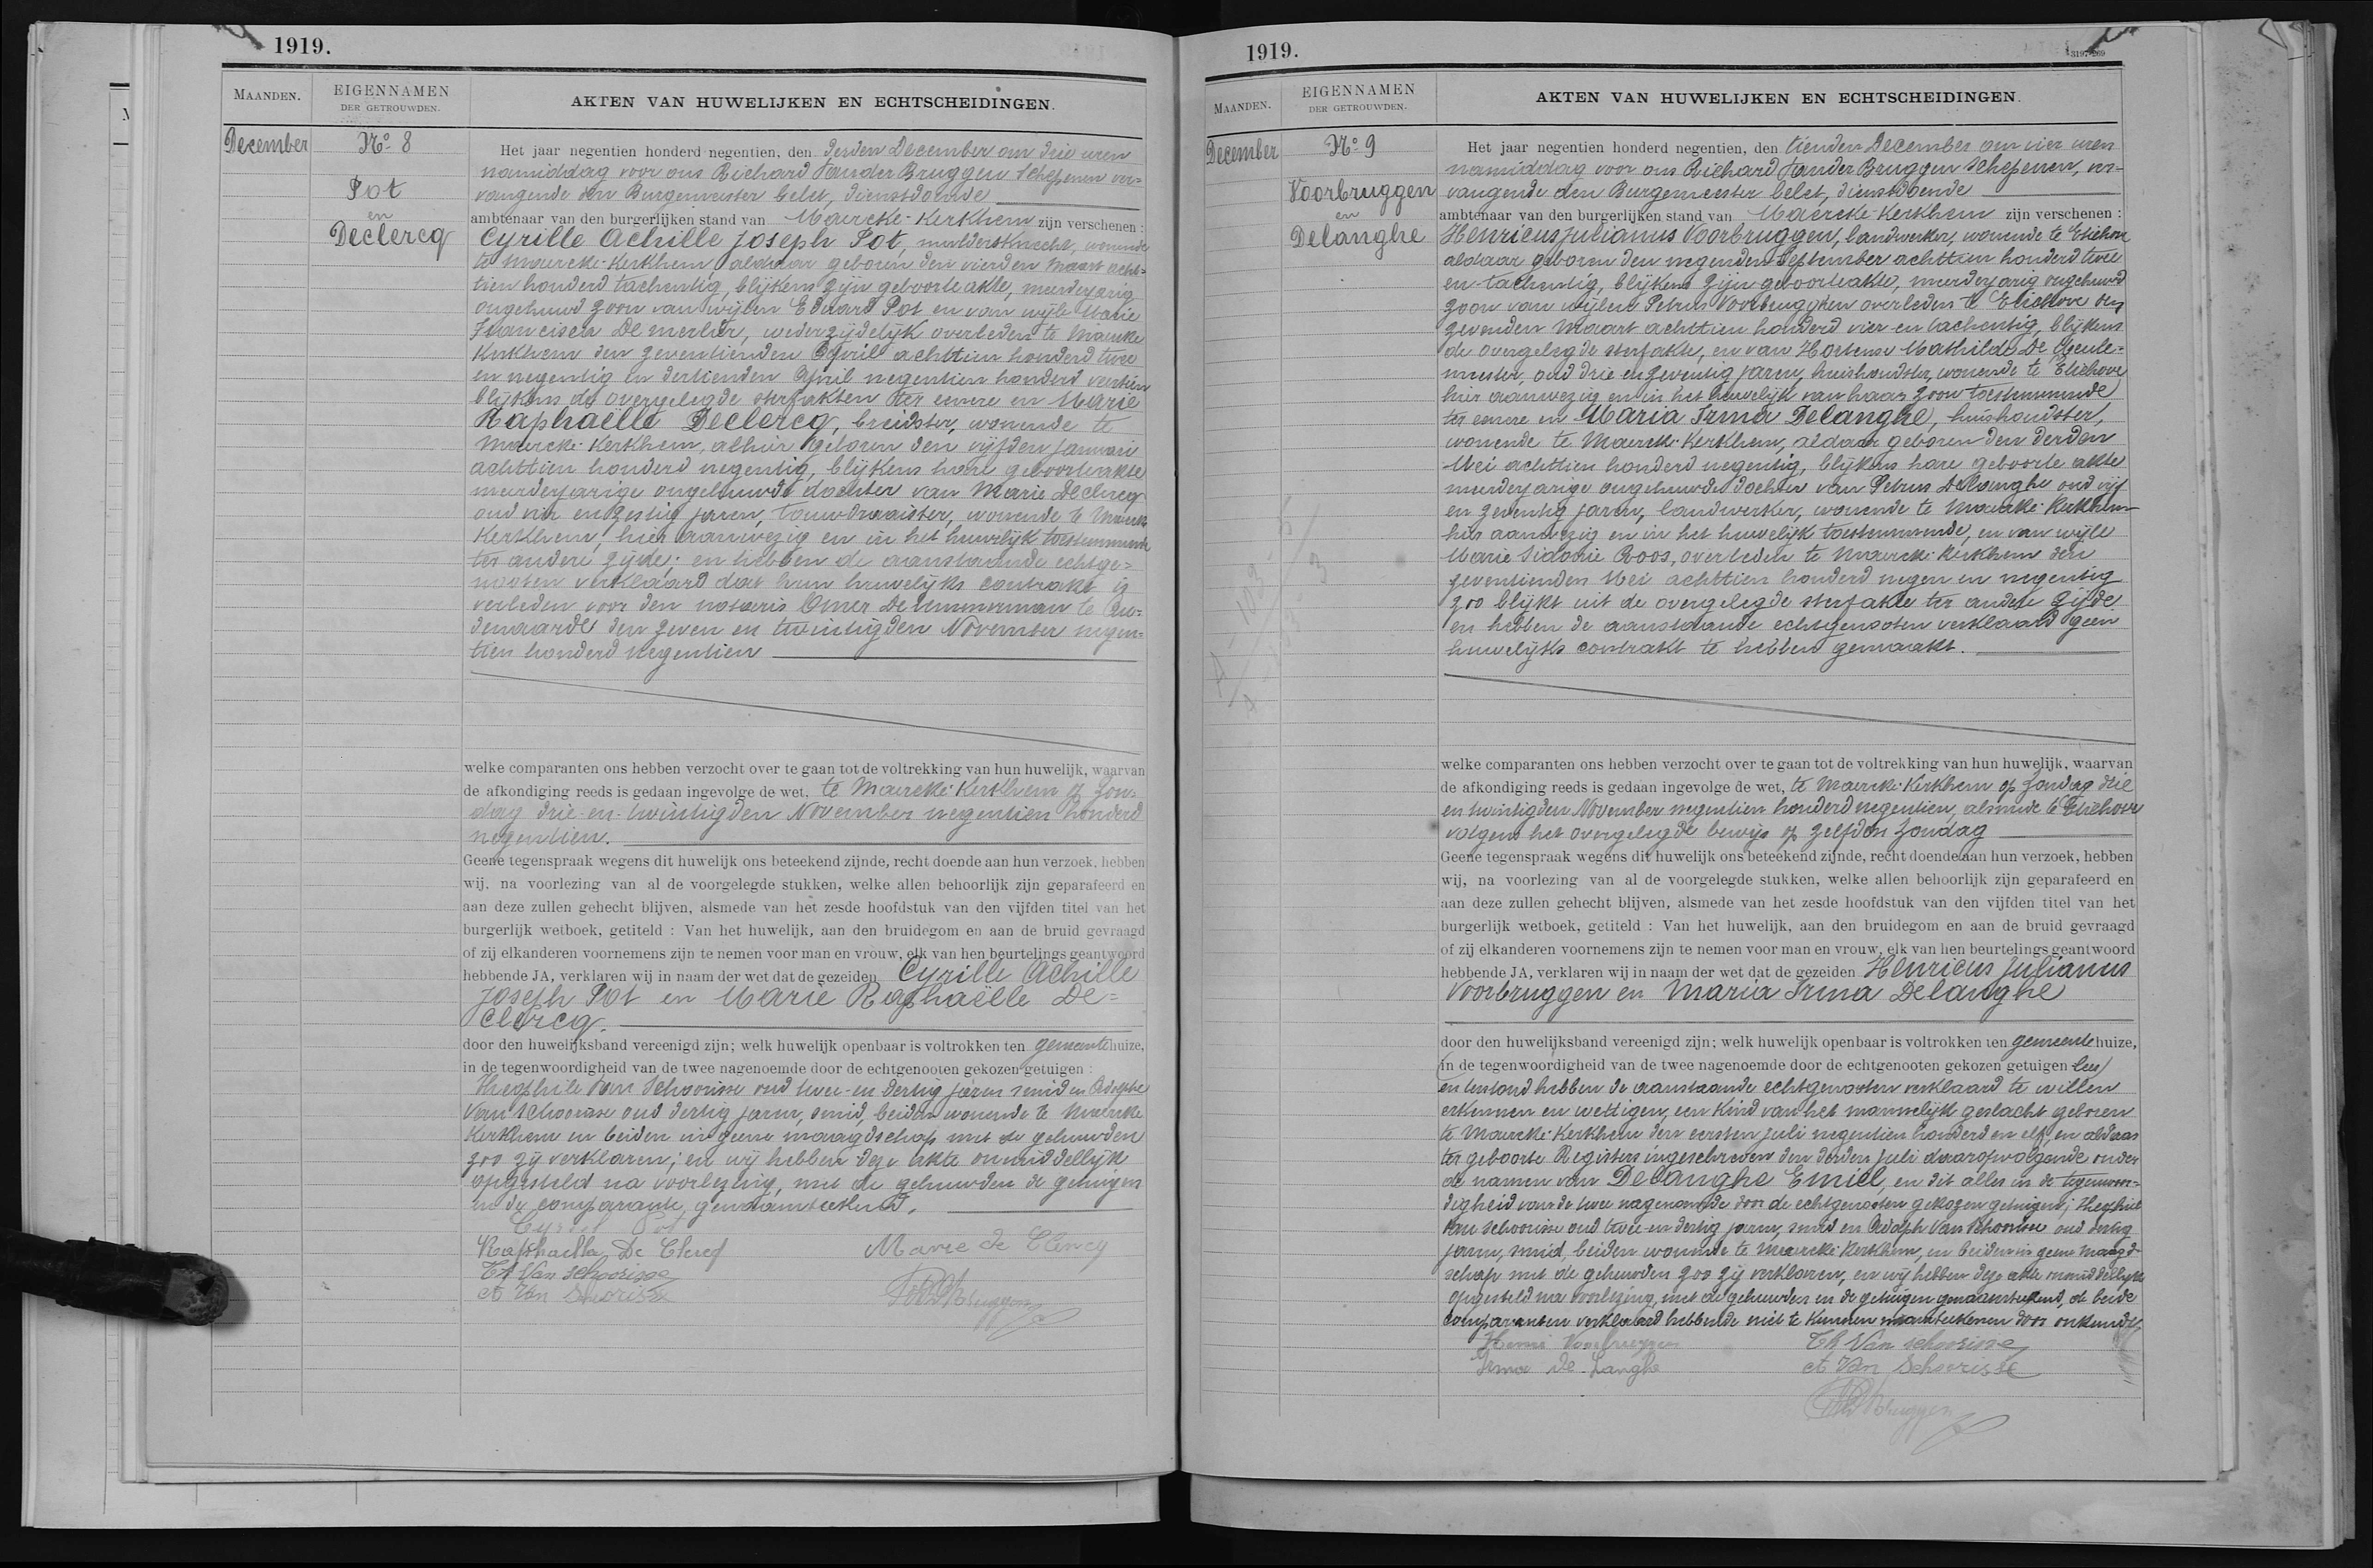 1919.
MAANDEN.
EIGENNAMEN
DER GETROUWDEN.
AKTEN VAN HUWELIJKEN EN ECHTSCHEIDINGEN.
December
No. 8
Pot
en
Declercq
Het jaar negentien honderd negentien, den derden December om drie uren
namiddag voor ons Richard VanderBruggen Schepenen ver=
vangende den Burgemeester belet, dienstdoende
ambtenaar van den burgerlijken stand van Maercke-Kerkhem zijn verschenen :
Cyrille Achille Joseph Pot, muldersknecht, wonende
te Maercke-Kerkhem, aldaar geboren den vierden Maart acht=
tien honderd tachentig, blijkens zijn geboorte akte, meerderjarig
ongehuwd zoon van wijlen Eduard Pot en van wijle Marie
Francisca De merlier, wederzijdelijk overleden te Maercke
Kerkhem den zeventienden April achttien honderd twee
en negentig en dertienden April negentien honderd veertien
blijkens de overgelegde sterfakten ter eenere en Marie
Raphaëlle Declercq, breidster, wonende te
Maercke-Kerkhem, alhier geboren den vijfden Januari
achttien honderd negentig, blijkens hare geboorteakte
meerderjarige ongehuwde dochter van Marie Declercq
oud vier en zestig jaren, wonende te Maercke
Kerkhem, hier aanwezig en in het huwelijk toestemmende
ter andere zijde; en hebben de aanstaande echtge=
nooten verklaard dat hun huwelijks contrakt is
verleden voor den notaris Omer De Temmerman te Au=
denaarde den zeven en twintigden November negen=
tien honderd negentien
welke comparanten ons hebben verzocht over te gaan tot de voltrekking van hun huwelijk, waarvan
de afkondiging reeds is gedaan ingevolge de wet, te Maercke-Kerkhem op Zon=
dag drie-en-twintigden November negentien honderd
negentien.
Geene tegenspraak wegens dit huwelijk ons beteekend zijnde, recht doende aan hun verzoek, hebben
wij, na voorlezing van al de voorgelegde stukken, welke allen behoorlijk zijn geparafeerd en
aan deze zullen gehecht blijven, alsmede van het zesde hoofdstuk van den vijfden titel van het
burgerlijk wetboek, getiteld : Van het huwelijk, aan den bruidegom en aan de bruid gevraagd
of zij elkanderen voornemens zijn te nemen voor man en vrouw, elk van hen beurtelings geantwoord
hebbende JA, verklaren wij in naam der wet dat de gezeiden Cyrille Achille
Joseph Pot en Marie Raphaëlle De=
Clercq.
door den huwelijksband vereenigd zijn; welk huwelijk openbaar is voltrokken ten gemeentehuize,
in de tegenwoordigheid van de twee nagenoemde door de echtgenooten gekozen getuigen :
Theophile Van Schoorisse oud twee-en dertig jaren smid en Adolphe
Van Schoorisse oud dertig jaren, smid, beiden wonende te Maercke
Kerkhem en beiden in geene maagdschap met de gehuwden
zoo zij verklaren; en wij hebben deze akte onmiddellijk
opgesteld na voorlezing, met de gehuwden de getuigen
en de comparante, genaamteekend.
Cyriel Pot
Raphaella De Clercq
Marie de Clercq
Th Van schoorisse
A Van Schorisse
1919.
3197-269
MAANDEN.
EIGENNAMEN
DER GETROUWDEN.
AKTEN VAN HUWELIJKEN EN ECHTSCHEIDINGEN.
December
No. 9
Voorbruggen
en
Delanghe
Het jaar negentien honderd negentien, den tienden December om vier uren
namiddag voor ons Richard VanderBruggen schepenen, ver=
vangende den Burgemeester belet, dienstdoende
ambtenaar van den burgerlijken stand van Maercke-Kerkhem zijn verschenen :
Henricus Julianus Voorbruggen, landwerker, wonende te Etichove
aldaar geboren den negenden September achttien honderd twee
en-tachentig, blijkens zijn geboorteakte, meerderjarig ongehuwd
zoon van wijlen Petrus Voorbruggen overleden te Etichove den
zevenden Maart achttien honderd vier en tachentig, blijkens
de overgelegde sterfakte, en van Hortense Mathilde De Ceule=
meester, oud drie en zeventig jaren, huishoudster, wonende te Etichove
hier aanwezig en in het huwelijk van haar zoon toestemmende
ter eenere en Maria Irma Delanghe, huishoudster,
wonende te Maercke-Kerkhem, aldaar geboren den derden
Mei achttien honderd negentig, blijkens hare geboorte akte
meerderjarige ongehuwde dochter van Petrus Delanghe oud vijf
en zeventig jaren, landwerker, wonende te Maercke-Kerkhem
hier aanwezig en in het huwelijk toestemmende, en van wijle
Marie Sidonie Roos, overleden te Maercke-Kerkhem den
zeventienden Mei achttien honderd negen en negentig
zoo blijkt uit de overgelegde sterfakte ter andere zijde
en hebben de aanstaande echtgenooten verklaard geen
huwelijks contrakt te hebben gemaakt.
welke comparanten ons hebben verzocht over te gaan tot de voltrekking van hun huwelijk, waarvan
de afkondiging reeds is gedaan ingevolge de wet, te Maercke-Kerkhem op Zondag drie
en twintigden November negentien honderd negentien, alsmede te Etichove
volgens het overgelegde bewijs op zelfden Zondag
Geene tegenspraak wegens dit huwelijk ons beteekend zijnde, recht doende aan hun verzoek, hebben
wij, na voorlezing van al de voorgelegde stukken, welke allen behoorlijk zijn geparafeerd en
aan deze zullen gehecht blijven, alsmede van het zesde hoofdstuk van den vijfden titel van het
burgerlijk wetboek, getiteld : Van het huwelijk, aan den bruidegom en aan de bruid gevraagd
of zij elkanderen voornemens zijn te nemen voor man en vrouw, elk van hen beurtelings geantwoord
hebbende JA, verklaren wij in naam der wet dat de gezeiden Henricus Julianus
Voorbruggen en Maria Irma Delanghe
door den huwelijksband vereenigd zijn; welk huwelijk openbaar is voltrokken ten gemeentehuize,
in de tegenwoordigheid van de twee nagenoemde door de echtgenooten gekozen getuigen
en terstond hebben de aanstaande echtgenooten verklaard te willen
erkennen en wettigen, een Kind van het mannelijk geslacht geboren
te Maercke-Kerkhem den eersten Juli negentien honderd en elf, en aldaar
ter geboorte Registers ingeschreven den derden Juli daaropvolgende onder
de namen van Delanghe Emiel, en dit alles in de tegenwoor=
digheid van de twee nagenoemde door de echtgenooten gekozen getuigen; Theophiel
Van Schoorisse oud twee-en dertig jaren, smid en Adolph Van Schoorisse oud dertig
jaren, smid, beiden wonende te Maercke-Kerkhem, en beiden in geene maagd-
schap met de gehuwden zoo zij verklaren, en wij hebben deze akte onmiddellijk
opgesteld na voorlezing, met de gehuwden en de getuigen genaamteekend, de beide
comparanten verklaard hebbende niet te kunnen naamteekenen door onkunde.
Henri Voorbruggen
Th Van schoorisse
Irma De Langhe
A Van Schoorisse